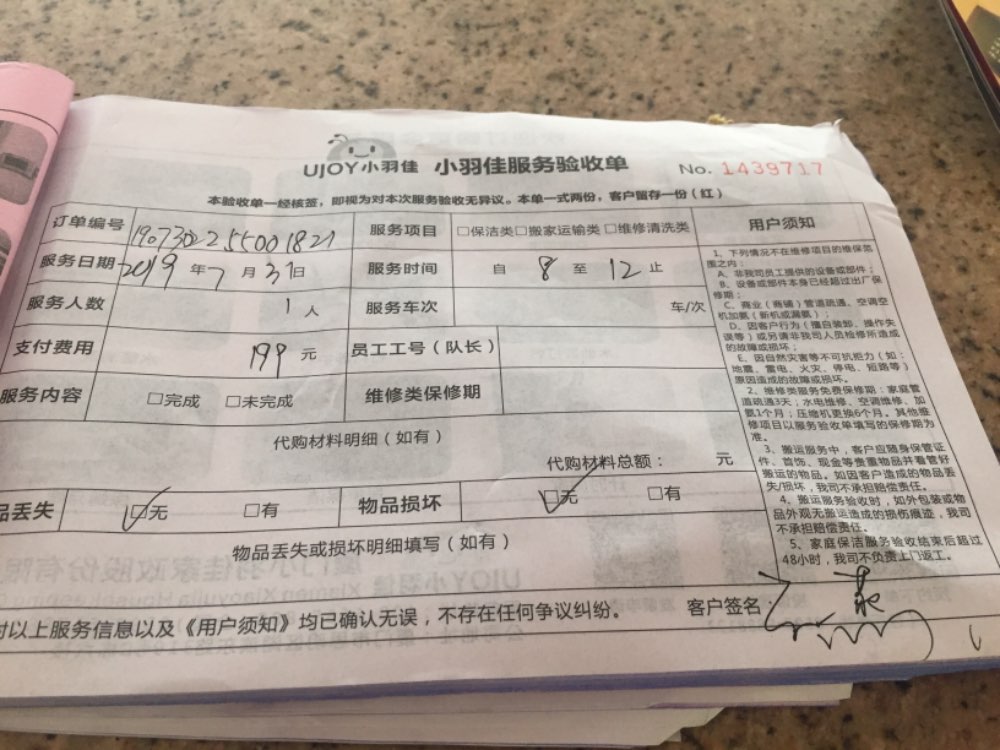 UJOY小羽佳 小羽佳服务验收单 No. 1439717
本验收单一经核签，即视为对本次服务验收无异议。本单一式两份，客户留存一份（红）
订单编号 1907302255001821 服务项目 □保洁类□搬家运输类□维修清洗类
服务日期 2019年7月31日 服务时间 自 8 至 12 止
服务人数 1 人 服务车次 车/次
支付费用 199 元 员工工号（队长）
服务内容 □完成 □未完成 维修类保修期
代购材料明细（如有）
代购材料总额： 元
品丢失 □无 □有 物品损坏 □无 □有
物品丢失或损坏明细填写（如有）
对以上服务信息以及《用户须知》均已确认无误，不存在任何争议纠纷。 客户签名：
用户须知
1、下列情况不在维修项目的维保范
围之内：
A、非我司员工提供的设备或部件；
B、设备或部件本身已经超过出厂保
修期；
C、商业（商铺）管道疏通、空调空
机加氨（新机或漏氨）；
D、因客户行为（擅自装卸、操作失
误等）或另请非我司人员检修所造成
的故障或损坏；
E、因自然灾害等不可抗拒力（如：
地震、雷电、火灾、停电、短路等）
原因造成的故障或损坏。
2、维修类服务免费保修期：家庭管
道疏通3天，水电维修、空调维修、加
氨1个月；压缩机更换6个月。其他维
修项目以服务验收单填写的保修期为
准。
3、搬运服务中，客户应随身保管证
件、首饰、现金等贵重物品并看管好
搬运的物品。如因客户造成的物品丢
失/损坏，我司不承担赔偿责任。
4、搬运服务验收时，如外包装或物
品外观无搬运造成的损伤痕迹，我司
不承担赔偿责任。
5、家庭保洁服务验收结束后超过
48小时，我司不负责上门返工。